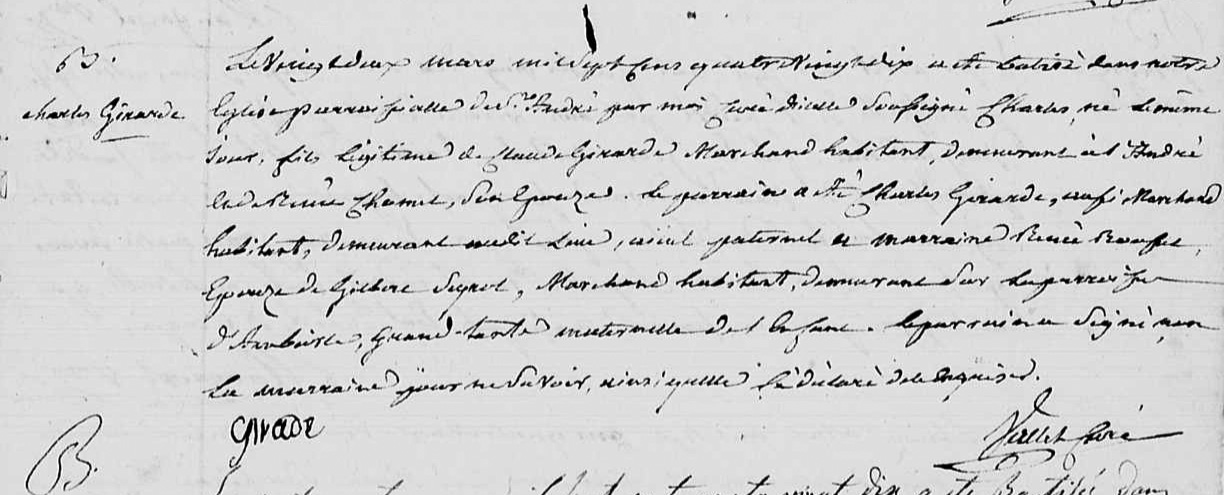 B.
charles Girarde
Le Vingt deux mars mil Sept Cens quatre Vingt dix a été batisé dans notre
Eglise parroissialle de St André par moi Curé d'icelle Soussigné Charles, né le même
jour, fils légitime de Claude Girarde Marchand habitant, demeurant à St André
et de Renée Chomet, Son Epouze. le parrain a été Charles Girarde, aussi Marchand
habitant, demeurant audit Lieu, aieul paternel et marraine Renée
Epouze de Gilbert Seyrol, Marchand habitant, demeurant Sur la parroisse
d'Ambierle, Grand-tante maternelle de l'Enfant. le parrain a Signé, non
La marraine pour ne Savoir, ainsi qu'elle l'a déclaré de ce enquise.
Girade
Viallet Curé
B.
quatre vingt dix a été Batisé dans